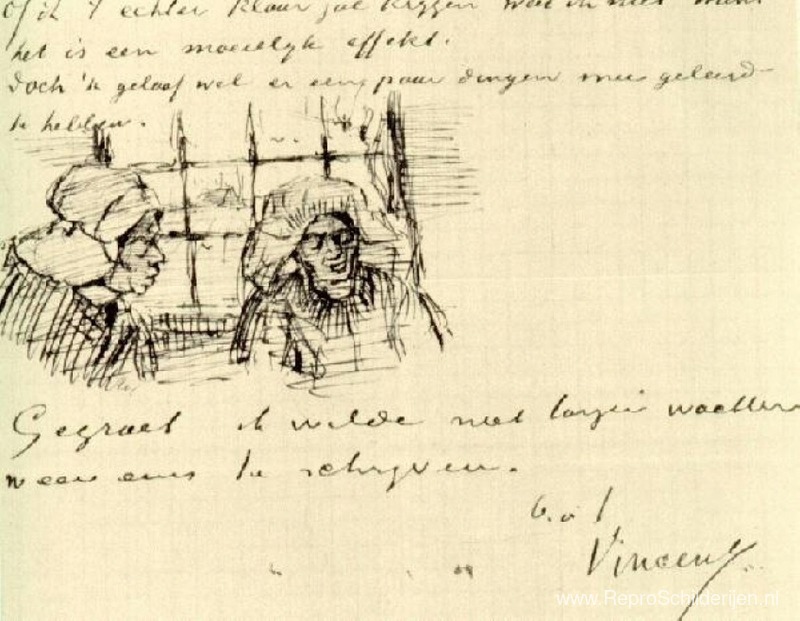 of ik 't echter klaar zal krijgen weet ik niet want
het is een moeielijk effekt.
Doch 'k geloof wel er een paar dingen mee geleerd
te hebben.
Gegroet ik wilde niet langer wachten
weer eens te schrijven.
b.a.t.
Vincent
www.ReproSchilderijen.nl